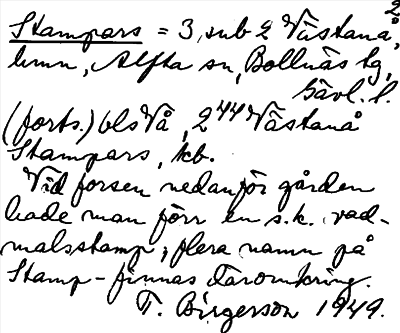 2
Stampars = 3, sub 2 Västanå,
hmn, Alfta sn, Bollnäs tg,
Gävl. l.
(forts.) bls Vå, 2 44 Västanå
Stampars, kb.
Vid forsen nedanför gården
hade man förr en s.k. vad-
malsstamp; flera namn på
Stamp- finnas däromkring.
T. Birgerson 1949.